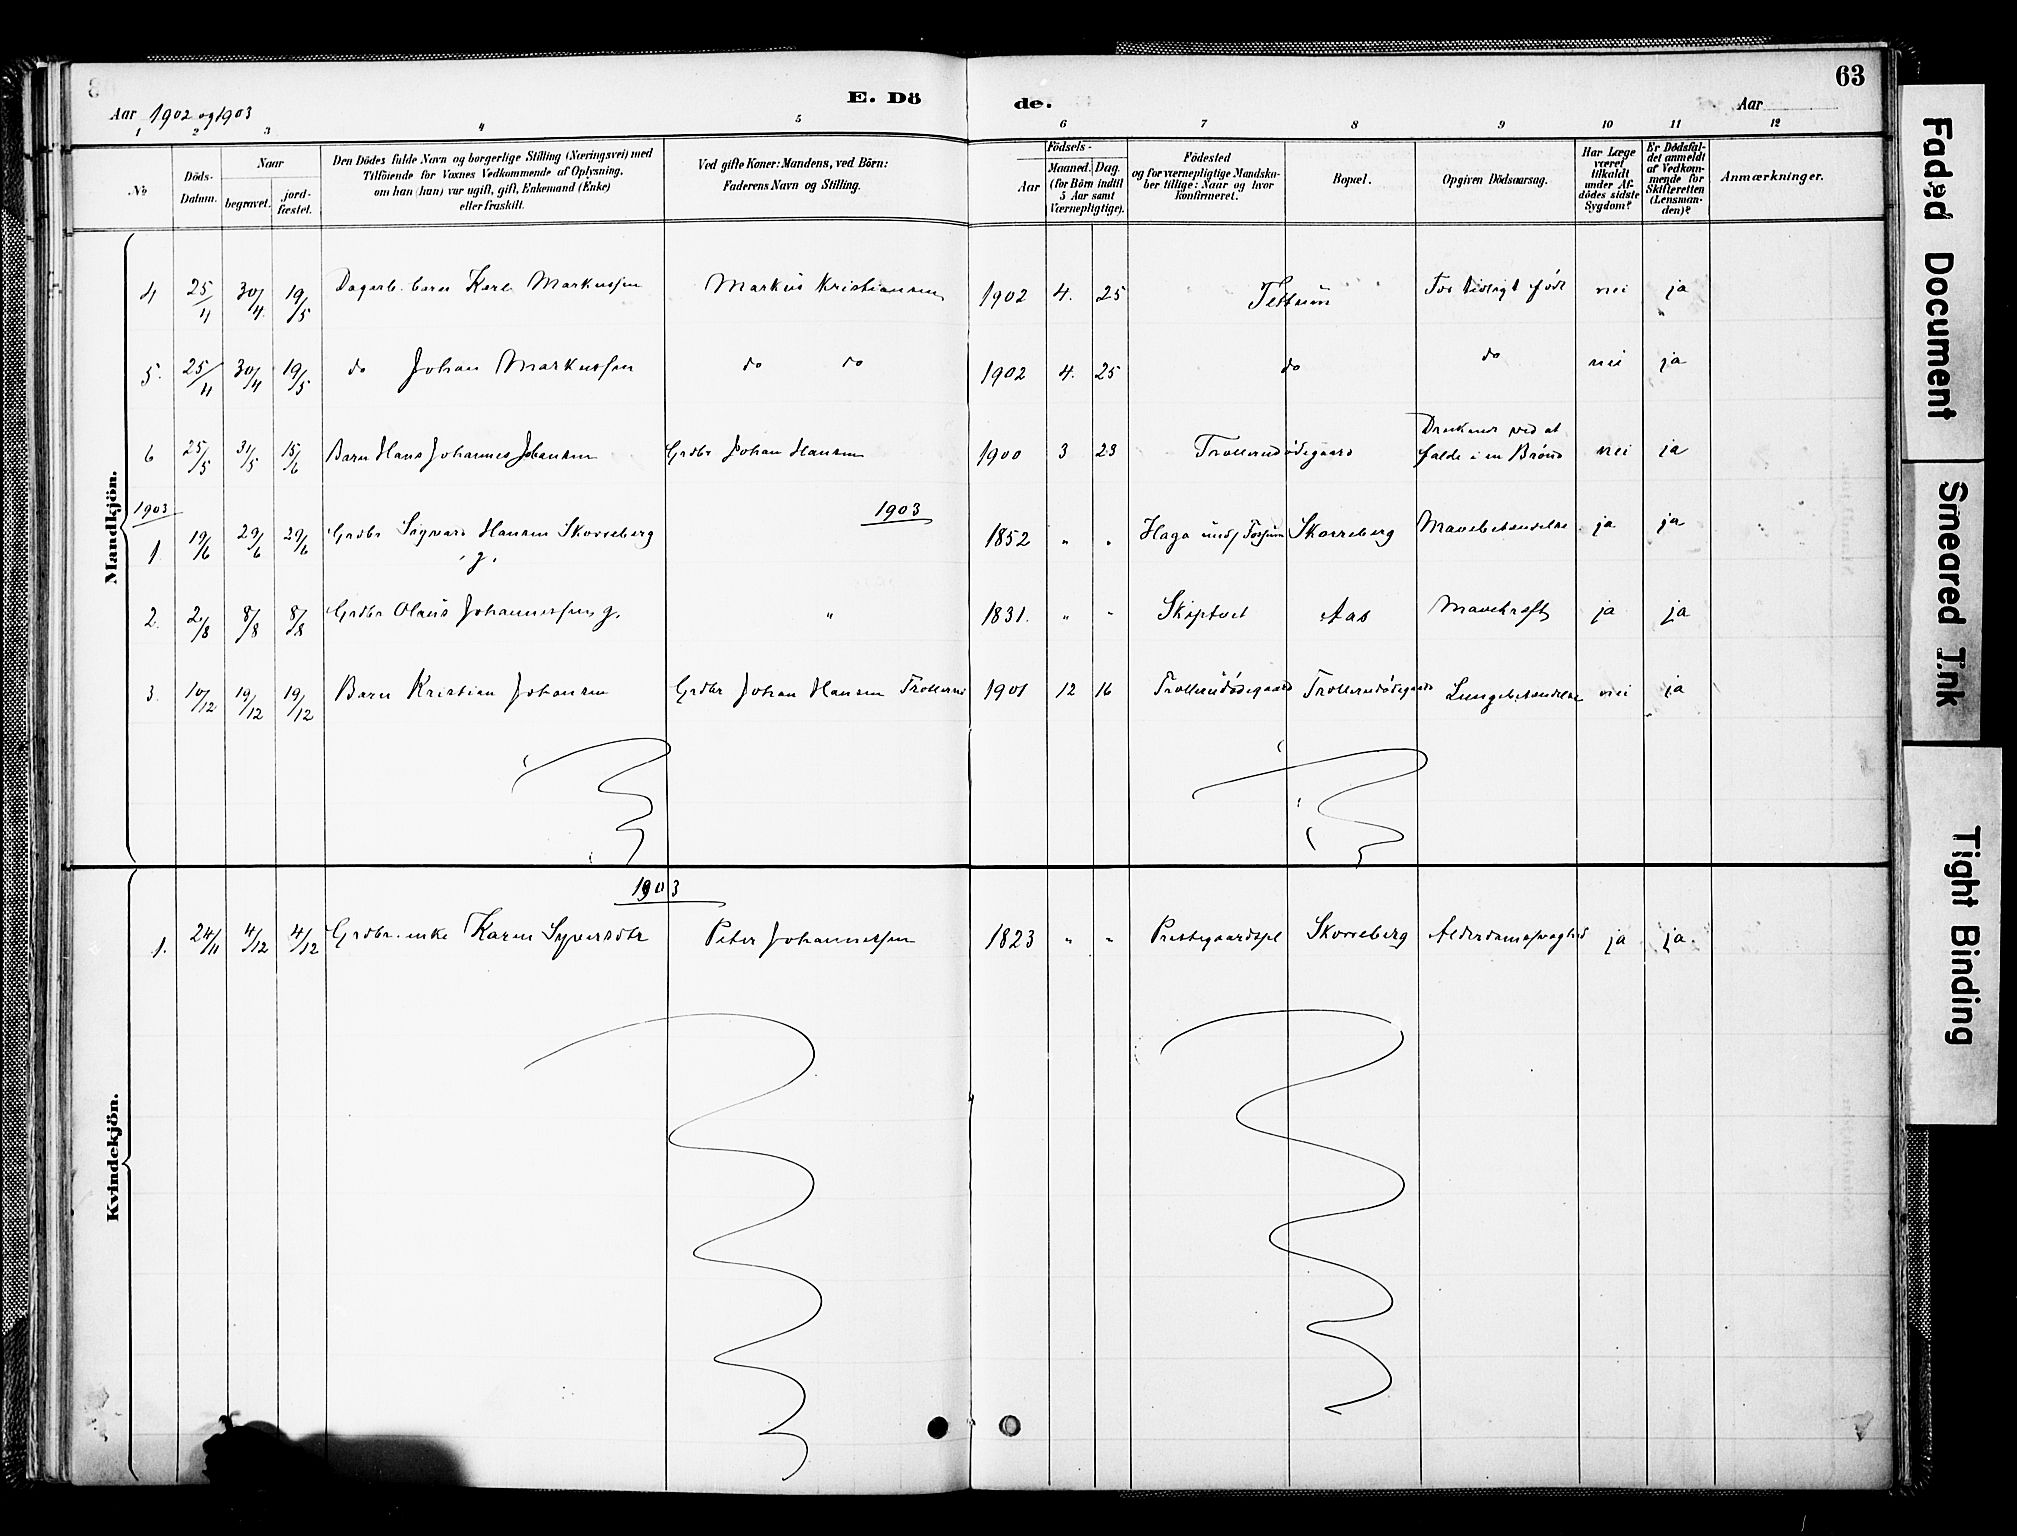 63
Aar 1902 og 1903
E. Dö
de.
Aar
1 2 3 4 5 6 7 8 9 10 11 12
No
Döds-
Datum.
Naar
begravet.
jord-
fæstet.
Den Dödes fulde Navn og borgerlige Stilling (Næringsvei) med
Tilföiende for Voxnes Vedkommende af Oplysning,
om han (hun) var ugift, gift, Enkemand (Enke)
eller fraskilt.
Ved gifte Koner: Mandens, ved Börn:
Faderens Navn og Stilling.
Födsels-
Aar
Maaned. Dag.
(for Börn indtil
5 Aar samt
Værnepligtige).
Födested
og for værnepligtige Mandska-
ber tillige: Naar og hvor
konfirmeret.
Bopæl.
Opgiven Dödsaarsag.
Har Læge
været
tilkaldt
under Af-
dödes sidste
Sygdom?
Er Dödsfal-
det anmeldt
af Vedkom-
mende for
Skifteretten
(Lensman-
den)?
Anmærkninger.
Mandkjön.
4 25/4 30/4 19/5 Dagarb. barn Karl Markussen Markus Kristiansen 1902 4. 25 Tettum For tidligt født nei ja
5. 25/4 30/4 19/5 do Johan Markussen do do 1902 4. 25 do do nei ja
6 25/5 31/5 15/6 Barn Hans Johannes Johansen Grdbr Johan Hansen 1900 3 23 Trollerudødegaard Druknet ved at
falde i en Brønd nei ja
1903
1903
1 19/6 29/6 29/6 Grdbr Sigvard Hansen Skovreberg
g. 1852 " " Haga und/ Skovreberg Mavebetændelse ja ja
2. 2/8 8/8 8/8 Grdbr Olaus Johannessen g. " 1831. " " Skiptvet Aas Mavekræft ja ja
3. 10/12 19/12 19/12 Barn Kristian Johansen Grdbr Johan Hansen Trollerud 1901 12 16 Trollerudødegaard Trollerudødegaard Lungebetændelse nei ja
Kvindekjön.
1903
1. 24/11 4/12 4/12 Grdbr. enke Karen Syversdtr Peter Johannessen 1823 " " Prestegaardspl Skovreberg Alderdomssvaghed ja ja.
Faded Document
Smeared Ink
Tight Binding